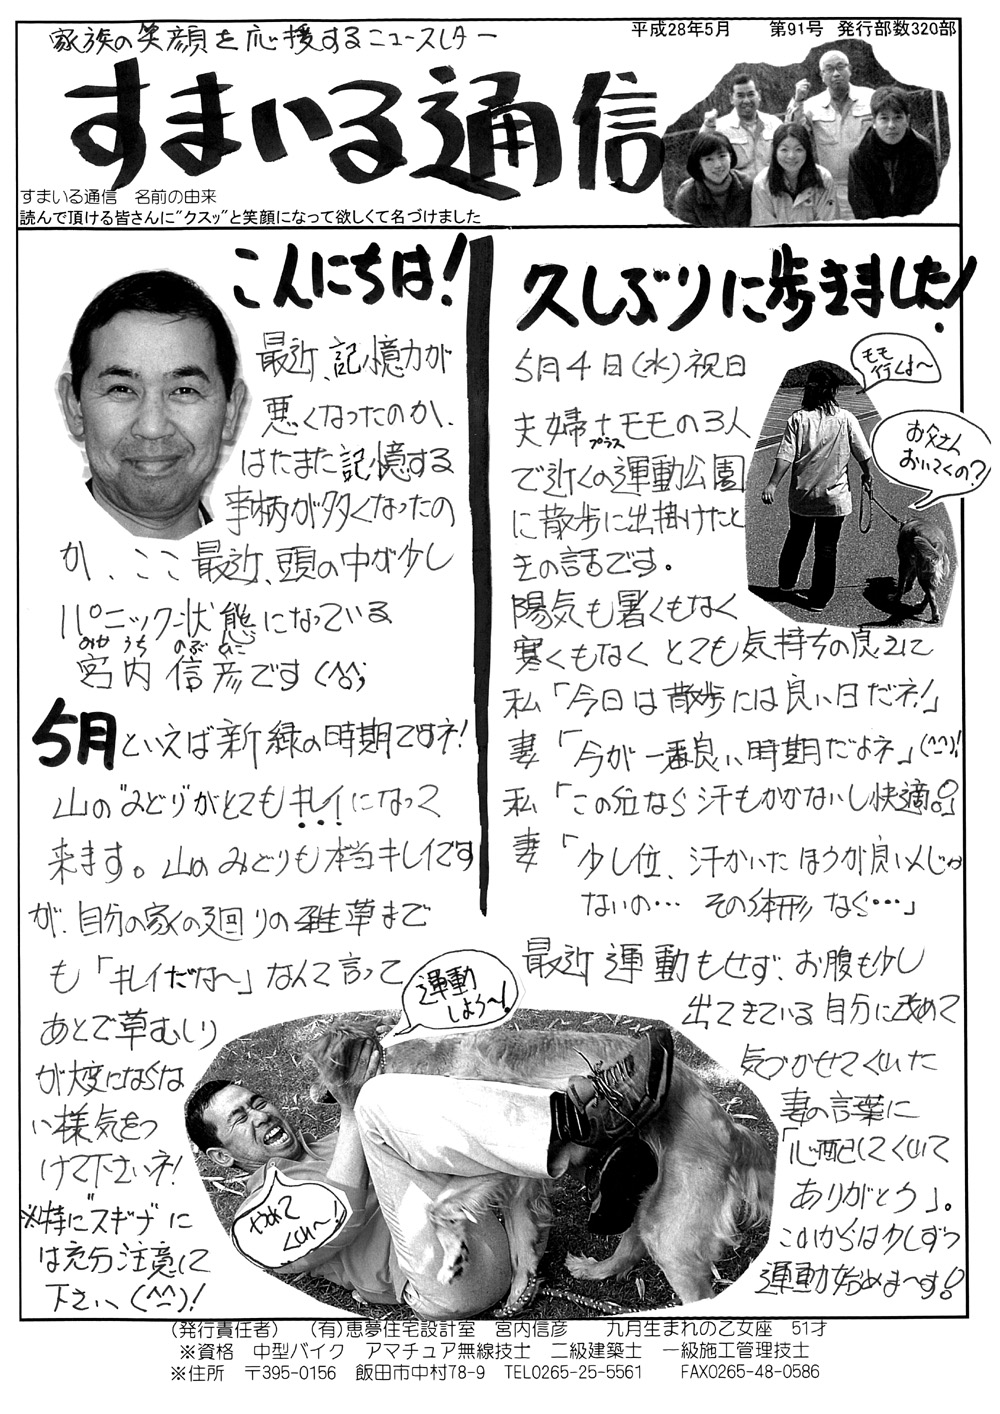 家族の笑顔を応援するニュースレター
平成28年5月 第91号 発行部数320部
すまいる通信
すまいる通信 名前の由来
読んで頂ける皆さんに"クスッ"と笑顔になって欲しくて名づけました
こんにちは!
最近、記憶力が
悪くなったのか、
はたまた記憶する
事柄が多くなったの
か、ここ最近、頭の中が少し
パニック状態になっている
みやうち のぶひこ
宮内信彦です(^^;
5月といえば新緑の時期ですネ!
山の"みどり"がとてもキレイになって
来ます。山のみどりも本当キレイです
が、自分の家の廻りの雑草まで
も「キレイだな～」なんて言って
あとで草むしり
が大変にならな
い様気をつ
けて下さいネ!
※特に"スギナ"に
は充分注意して
下さい、(^^)!
久しぶりに歩きました!
5月4日(水)祝日
夫婦+モモの3人
プラス
で近くの運動公園
に散歩に出掛けたと
きの話です。
陽気も暑くもなく
寒くもなくとても気持ちの良さに
私「今日は散歩には良い日だネ!」
妻「今が一番良い時期だよネ」(^^)!
私「この位なら汗もかかないし快適。」
妻「少し位、汗かいたほうが良いんじゃ
ないの… その体形なら…」
最近運動もせず、お腹も少し
出てきている自分に改めて
気づかせてくれた
妻の言葉に
「心配してくれて
ありがとう」。
これからは少しずつ
運動始めま～す!
モモ
行くよ～
お父さん
おいてくの?
運動
しよう～!
やめて
くれ～!
(発行責任者) (有)恵夢住宅設計室 宮内信彦 九月生まれの乙女座 51才
※資格 中型バイク アマチュア無線技士 二級建築士 一級施工管理技士
※住所 〒395-0156 飯田市中村78-9 TEL0265-25-5561 FAX0265-48-0586